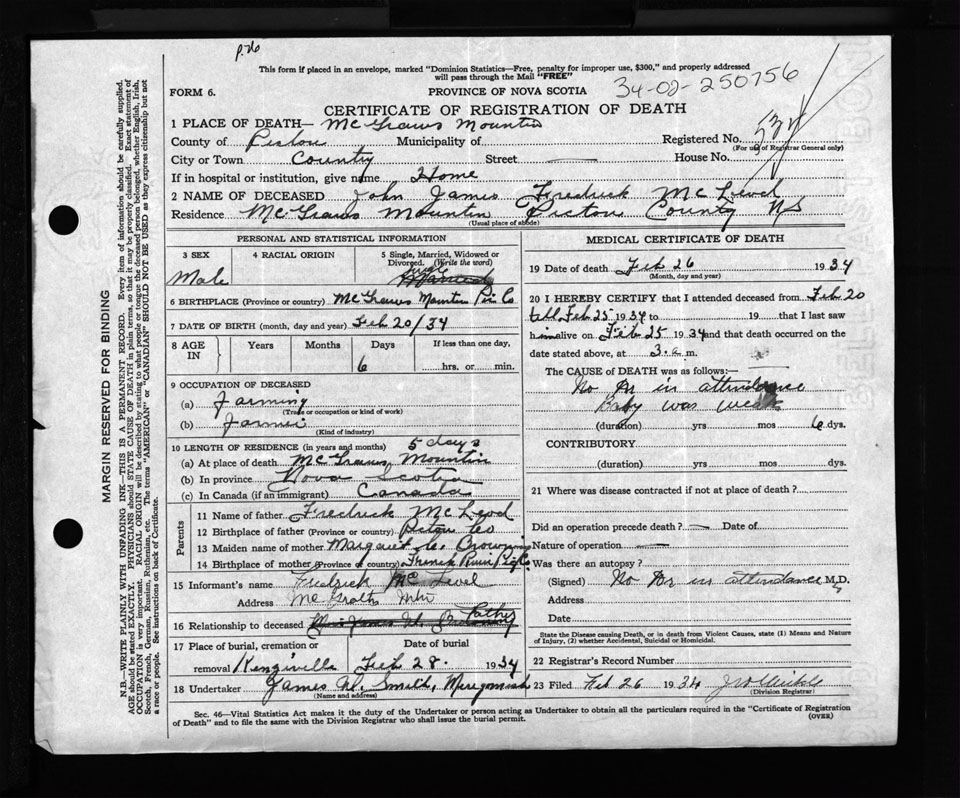 p. 26
This form if placed in an envelope, marked "Dominion Statistics—Free, penalty for improper use, $300," and properly addressed
will pass through the Mail "FREE"
FORM 6.
PROVINCE OF NOVA SCOTIA
34-02-250756
CERTIFICATE OF REGISTRATION OF DEATH
1 PLACE OF DEATH— McGraws Mountin
County of Pictou Municipality of Registered No. 532
(For use of Registrar General only)
City or Town County Street — House No.
If in hospital or institution, give name Home
2 NAME OF DECEASED John James Fredrick McLeod
Residence McGraws Mountin Pictou County NS
(Usual place of abode)
PERSONAL AND STATISTICAL INFORMATION
3 SEX 4 RACIAL ORIGIN 5 Single, Married, Widowed or
Divorced. (Write the word)
Male Single
6 BIRTHPLACE (Province or country) McGraws Mountin Pic Co
7 DATE OF BIRTH (month, day and year) Feb 20/34
8 AGE IN Years Months Days If less than one day,
6 hrs. or min.
9 OCCUPATION OF DECEASED
(a) Farming
(Trade or occupation or kind of work)
(b) Farmer
(Kind of industry)
10 LENGTH OF RESIDENCE (in years and months) 5 days
(a) At place of death McGraws Mountin
(b) In province Nova Scotia
(c) In Canada (if an immigrant) Canada
Parents
11 Name of father Fredrick McLeod
12 Birthplace of father (Province or country) Pictou Co
13 Maiden name of mother Margaret
14 Birthplace of mother (Province or country) French River
15 Informant's name Fredrick McLeod
Address
16 Relationship to deceased Father
17 Place of burial, cremation or Date of burial
removal Feb 28 1934
18 Undertaker James Smith, Merigomish
(Name and address)
MEDICAL CERTIFICATE OF DEATH
19 Date of death Feb 26 1934
(Month, day and year)
20 I HEREBY CERTIFY that I attended deceased from Feb 20
till Feb 25 1934 to 19 that I last saw
him alive on Feb 25 1934 and that death occurred on
date stated above, at 3. a m.
The CAUSE of DEATH was as follows:—
No Dr in attendance
Baby was weak
(duration) yrs mos 6 dys.
CONTRIBUTORY
(duration) yrs mos dys.
21 Where was disease contracted if not at place of death?
Did an operation precede death? — Date of
Nature of operation —
Was there an autopsy?
(Signed) No Dr in attendance M.D.
Address
Date
State the Disease causing Death, or in death from Violent Causes, state (1) Means and Nature
of Injury, (2) whether Accidental, Suicidal or Homicidal.
22 Registrar's Record Number
23 Filed Feb 26 1934
(Division Registrar)
Sec. 46—Vital Statistics Act makes it the duty of the Undertaker or person acting as Undertaker to obtain all the particulars required in the "Certificate of Registration
of Death" and to file the same with the Division Registrar who shall issue the burial permit.
(OVER)
MARGIN RESERVED FOR BINDING
N.B.—WRITE PLAINLY WITH UNFADING INK—THIS IS A PERMANENT RECORD. Every item of information should be carefully supplied.
AGE should be stated EXACTLY. PHYSICIANS should STATE CAUSE OF DEATH in plain terms, so that it may be properly classified. Exact statement of
OCCUPATION is very important. RACIAL ORIGIN will be described by stating to what people or tongue the deceased person belonged, whether English, Irish,
Scotch, French, German, Russian, Ruthenian, etc. The terms "AMERICAN" or "CANADIAN" SHOULD NOT BE USED as they express citizenship but not
a race or people. See instructions on back of Certificate.